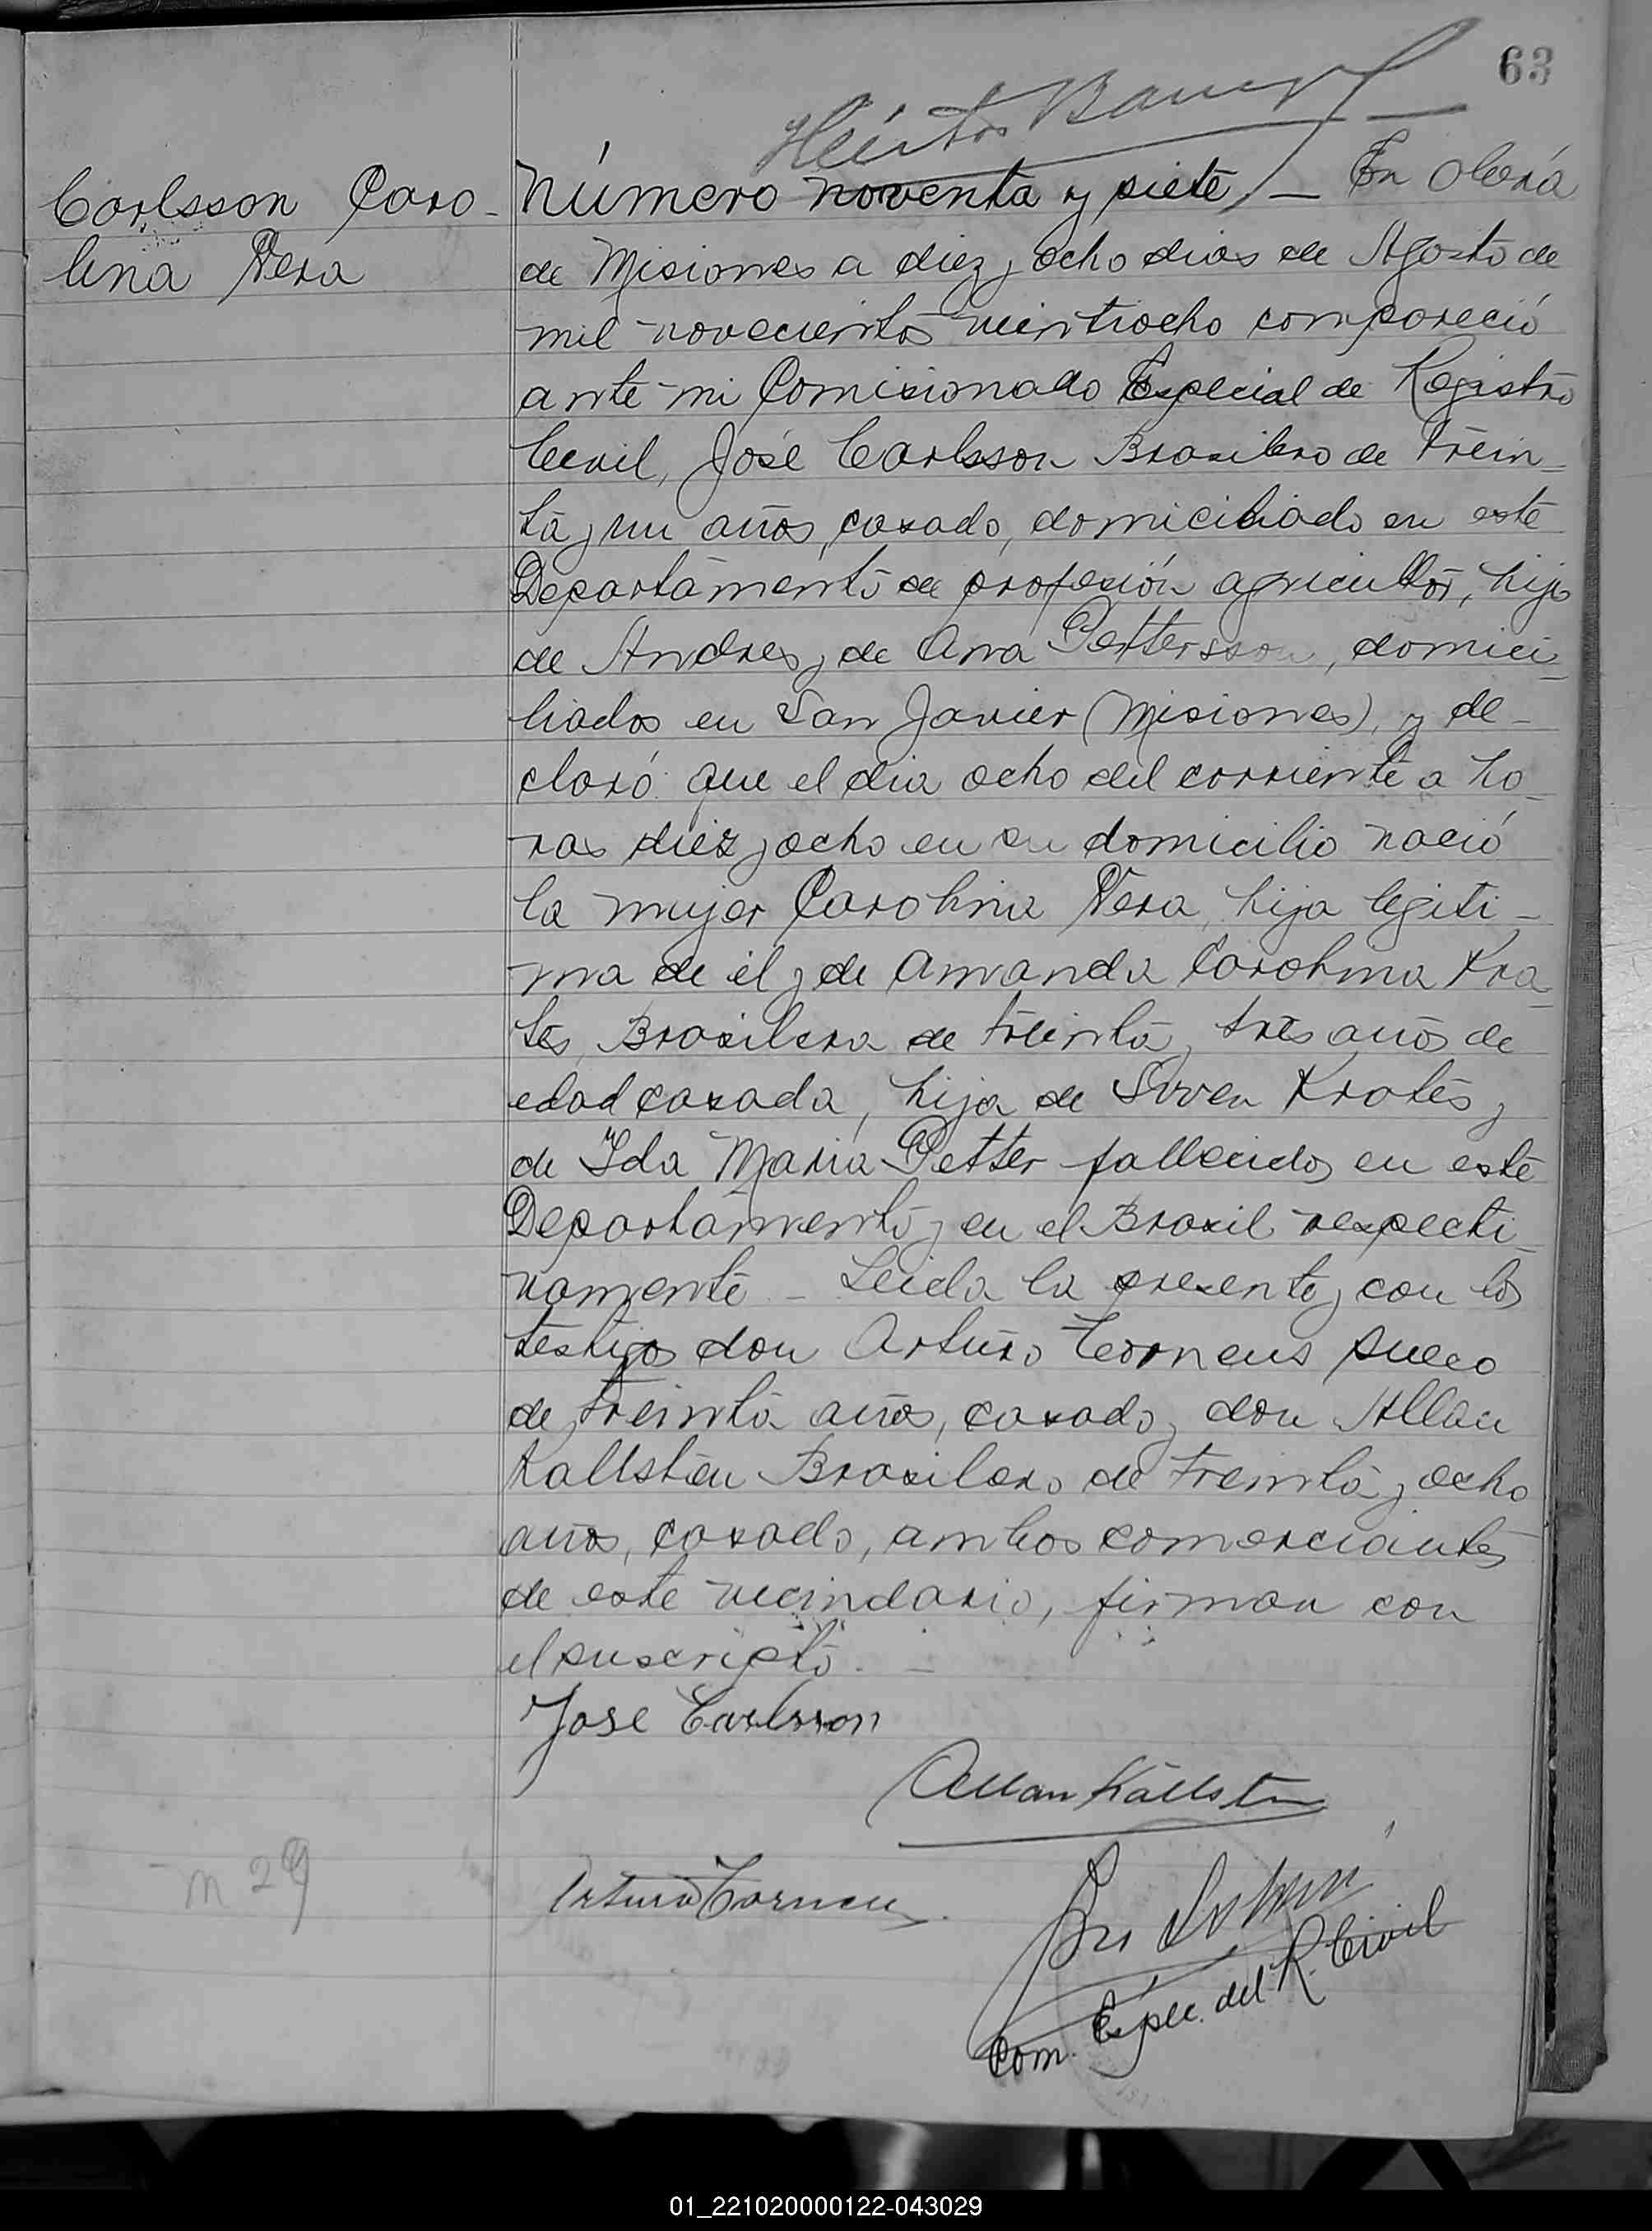 63
Héctor
Carlsson Caro-
lina Vera
Número noventa y siete, — En Oberá
de Misiones a diez y ocho dias de Agosto de
mil novecientos veintiocho compareció
ante mi Comisionado Especial de Registro
Civil, José Carlsson Brasilero de trein-
ta y un años, casado, domiciliado en este
Departamento de profesión agricultor, hijo
de Andres y de Ana Pettersson, domici-
liados en San Javier (Misiones), y de-
claró: que el dia ocho del corriente a ho-
ras diez y ocho en su domicilio nació
la mujer Carolina Vera, hija legiti-
ma de él y de Amanda Carolina Kra-
tes, Brasilera de treinta y tres años de
edad casada, hija de Sven Krates y
de Ida Maria Petter fallecidos en este
Departamento y en el Brasil respecti-
vamente – Leida la presente y con los
testigos don Arturo Torneus sueco
de treinta años, casado y don Allan
Kallsten Brasilero de treinta y ocho
años, casado, ambos comerciantes
de este vecindario, firman con
el suscripto. –
Jose Carlsson
Allan Källsten
Arturo Torneus
Com. Espec. del R. Civil
m 29
01_221020000122-043029